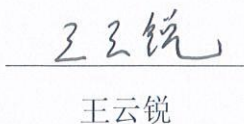 王云锐
王云锐